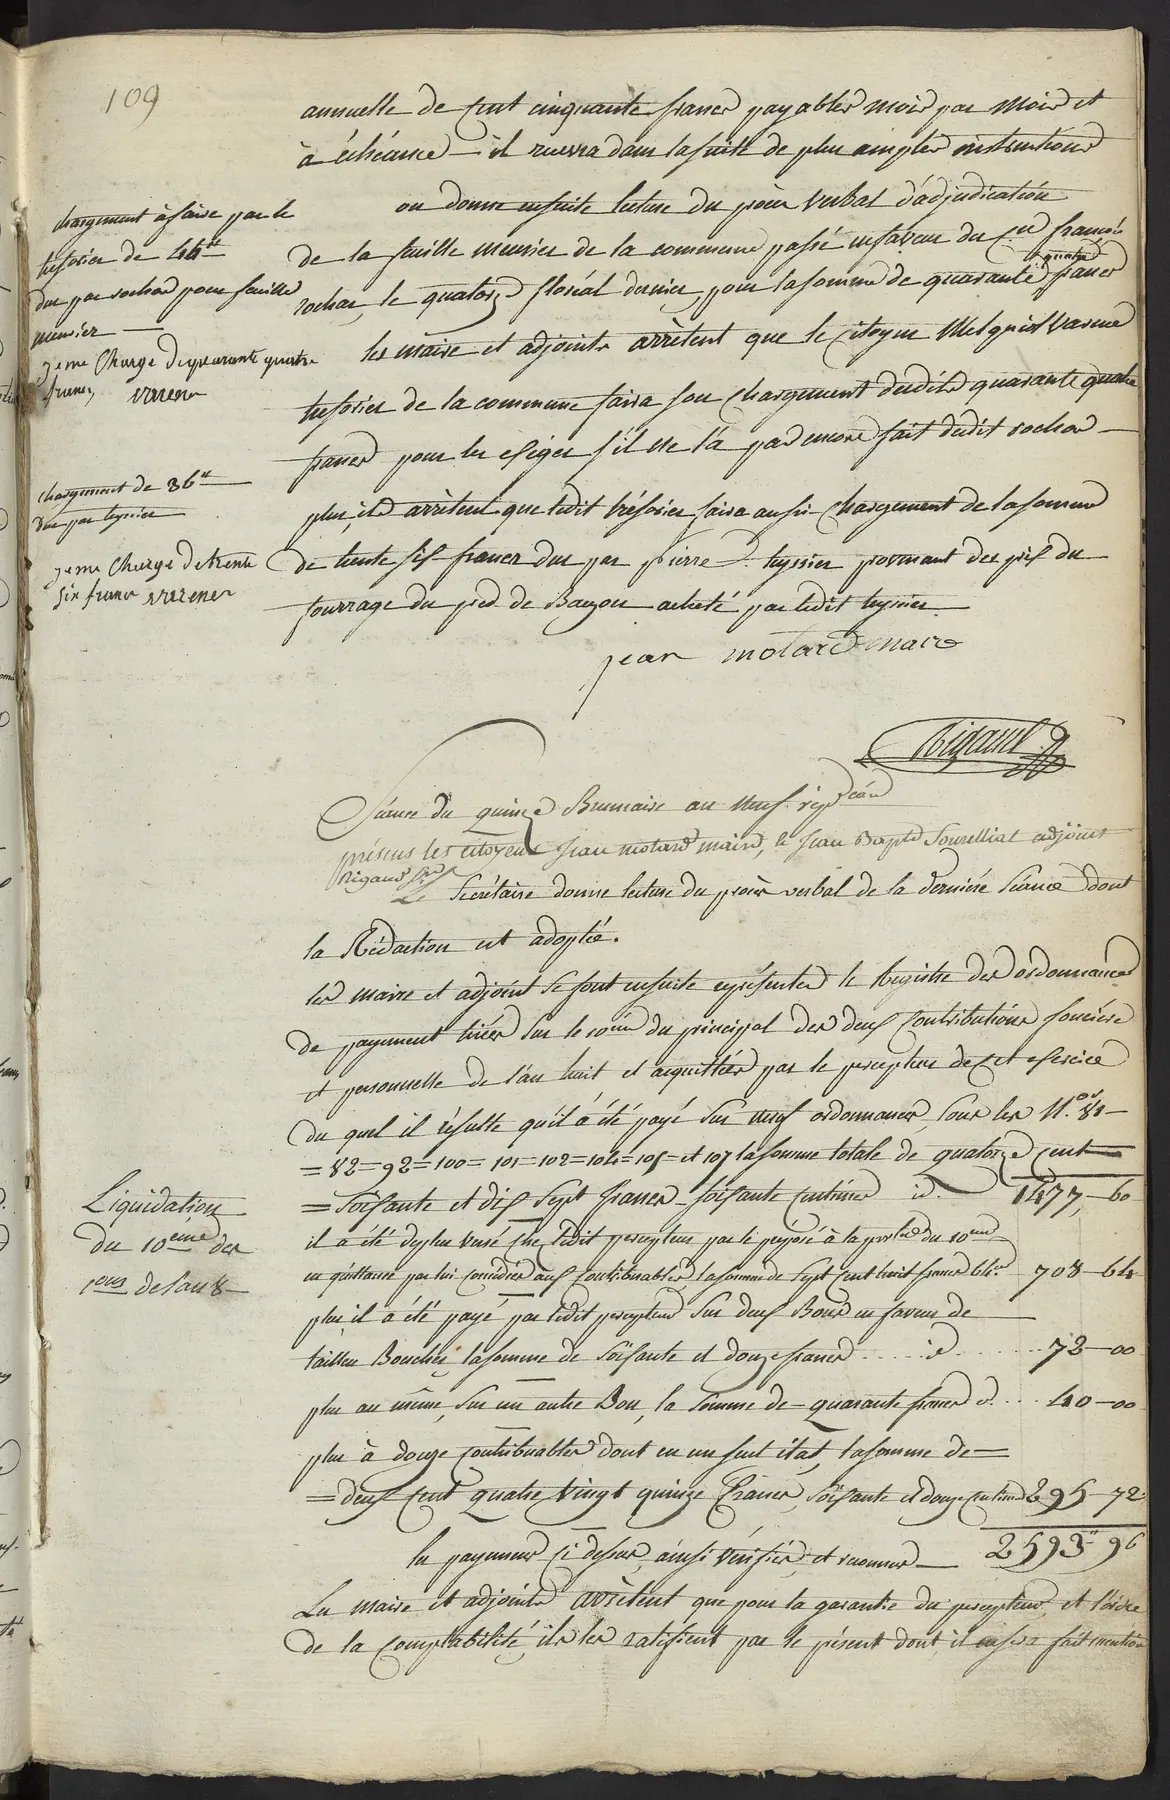 109
annuelle de cent cinquante francs payables mois par mois et
à échéance — il recevra dans la suite de plus amples instructions
on donne ensuite lecture du procès verbal d'adjudication
de la feuille meurier de la commune passé en faveur du cen françois
rochas, le quatorze floréal dernier, pour la somme de quarante quatre francs
les maire et adjoints arrêtent que le citoyen Melquiol
trésorier de la commune faira son chargement desdits quarante quatre
francs pour les exiger s'il ne l'a pas encore fait dudit rochas —
plus, ils arrêtent que ledit trésorier faira aussi chargement de la somme
de trente six francs dus par pierre teyssier provenant du prix du
fourrage du pred de Bauzon acheté par ledit teyssier
jean motard maire
Rigaud
chargement à faire par le
trésorier de 44tt
dus par rochas pour feuille
meurier —
jeme Charge de quarante quatre
francs
chargement de 36tt
dus par teyssier
jeme Charge de trente
six francs
Séance du quinze Brumaire an neuf républicain
présens les citoyens Jean motard maire, & Jean Baptte adjoint
Rigaud Sre
Le Secrétaire donne lecture du procès verbal de la derniére Séance dont
la Rédaction est adoptée.
les maire et adjoint se font ensuite représenter le Registre des ordonnances
de payement tirées sur le 10eme du principal des deux Contributions foncière
et personnelle de l'an huit et acquittées par le percepteur de cet exercice
du quel il résulte qu'il a été payé sur neuf ordonnances, sous les N.os 81 —
= 82 = 92 = 100 = 101 = 102 = 104 = 105 = et 107 la somme totale de quatorze cent
= soixante et dix sept francs — soixante centimes id. 1477,—60
il a été de plus versé chez ledit percepteur par le préposé à la du 10eme
en quittance par lui concédées aux Contribuables, la somme de sept cent huit francs 64c 708—64
plus il a été payé par ledit percepteur sur deux Bons en faveur de
tailleu Boucher, la somme de soixante et douze francs .... id ...... 72—00
plus au même, sur un autre Bon, la somme de — quarante francs d. ... 40—00
plus à douze Contribuables dont en un seul état, la somme de =
= deux cent quatre vingt quinze francs, soixante et douze centimes 295—72
les payemens ci dessus, ainsi vérifiés, et reconnus — 2593 96
Les maire et adjoints arrêtent que pour la garantie du percepteur, et l'ordre
de la Comptabilité, ils les ratifient par le présent dont il en sera fait mention
Liquidation
du 10eme des
de l'an 8 —